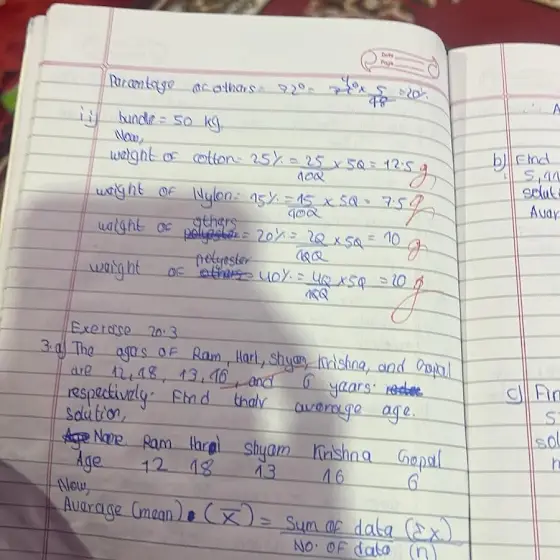 Date
Page
Parcantage of others = 72° = 72° × 5/18 = 20%
ii) bundle = 50 kg.
Now,
weight of cotton = 25% = 25/100 × 50 = 12.5 g
weight of Nylon = 15% = 15/100 × 50 = 7.5 g
waight of others = 20% = 20/100 × 50 = 10 g
waight of polyester = 40% = 40/100 × 50 = 20 g
Exercise 20.3
3.a) The agas of Ram, Hari, shyam, Krishna, and Gopal
are 12, 18, 13, 16, and 6 yaars.
respectively. Find thair avarage age.
solution,
Name Ram Hari shyam Krishna Gopal
Age 12 18 13 16 6
Now,
Avarage (mean) (x̄) = Sum of data (Σx)
No. of data (n)
b) Find
5,
Avar
c) Fin
5
sol